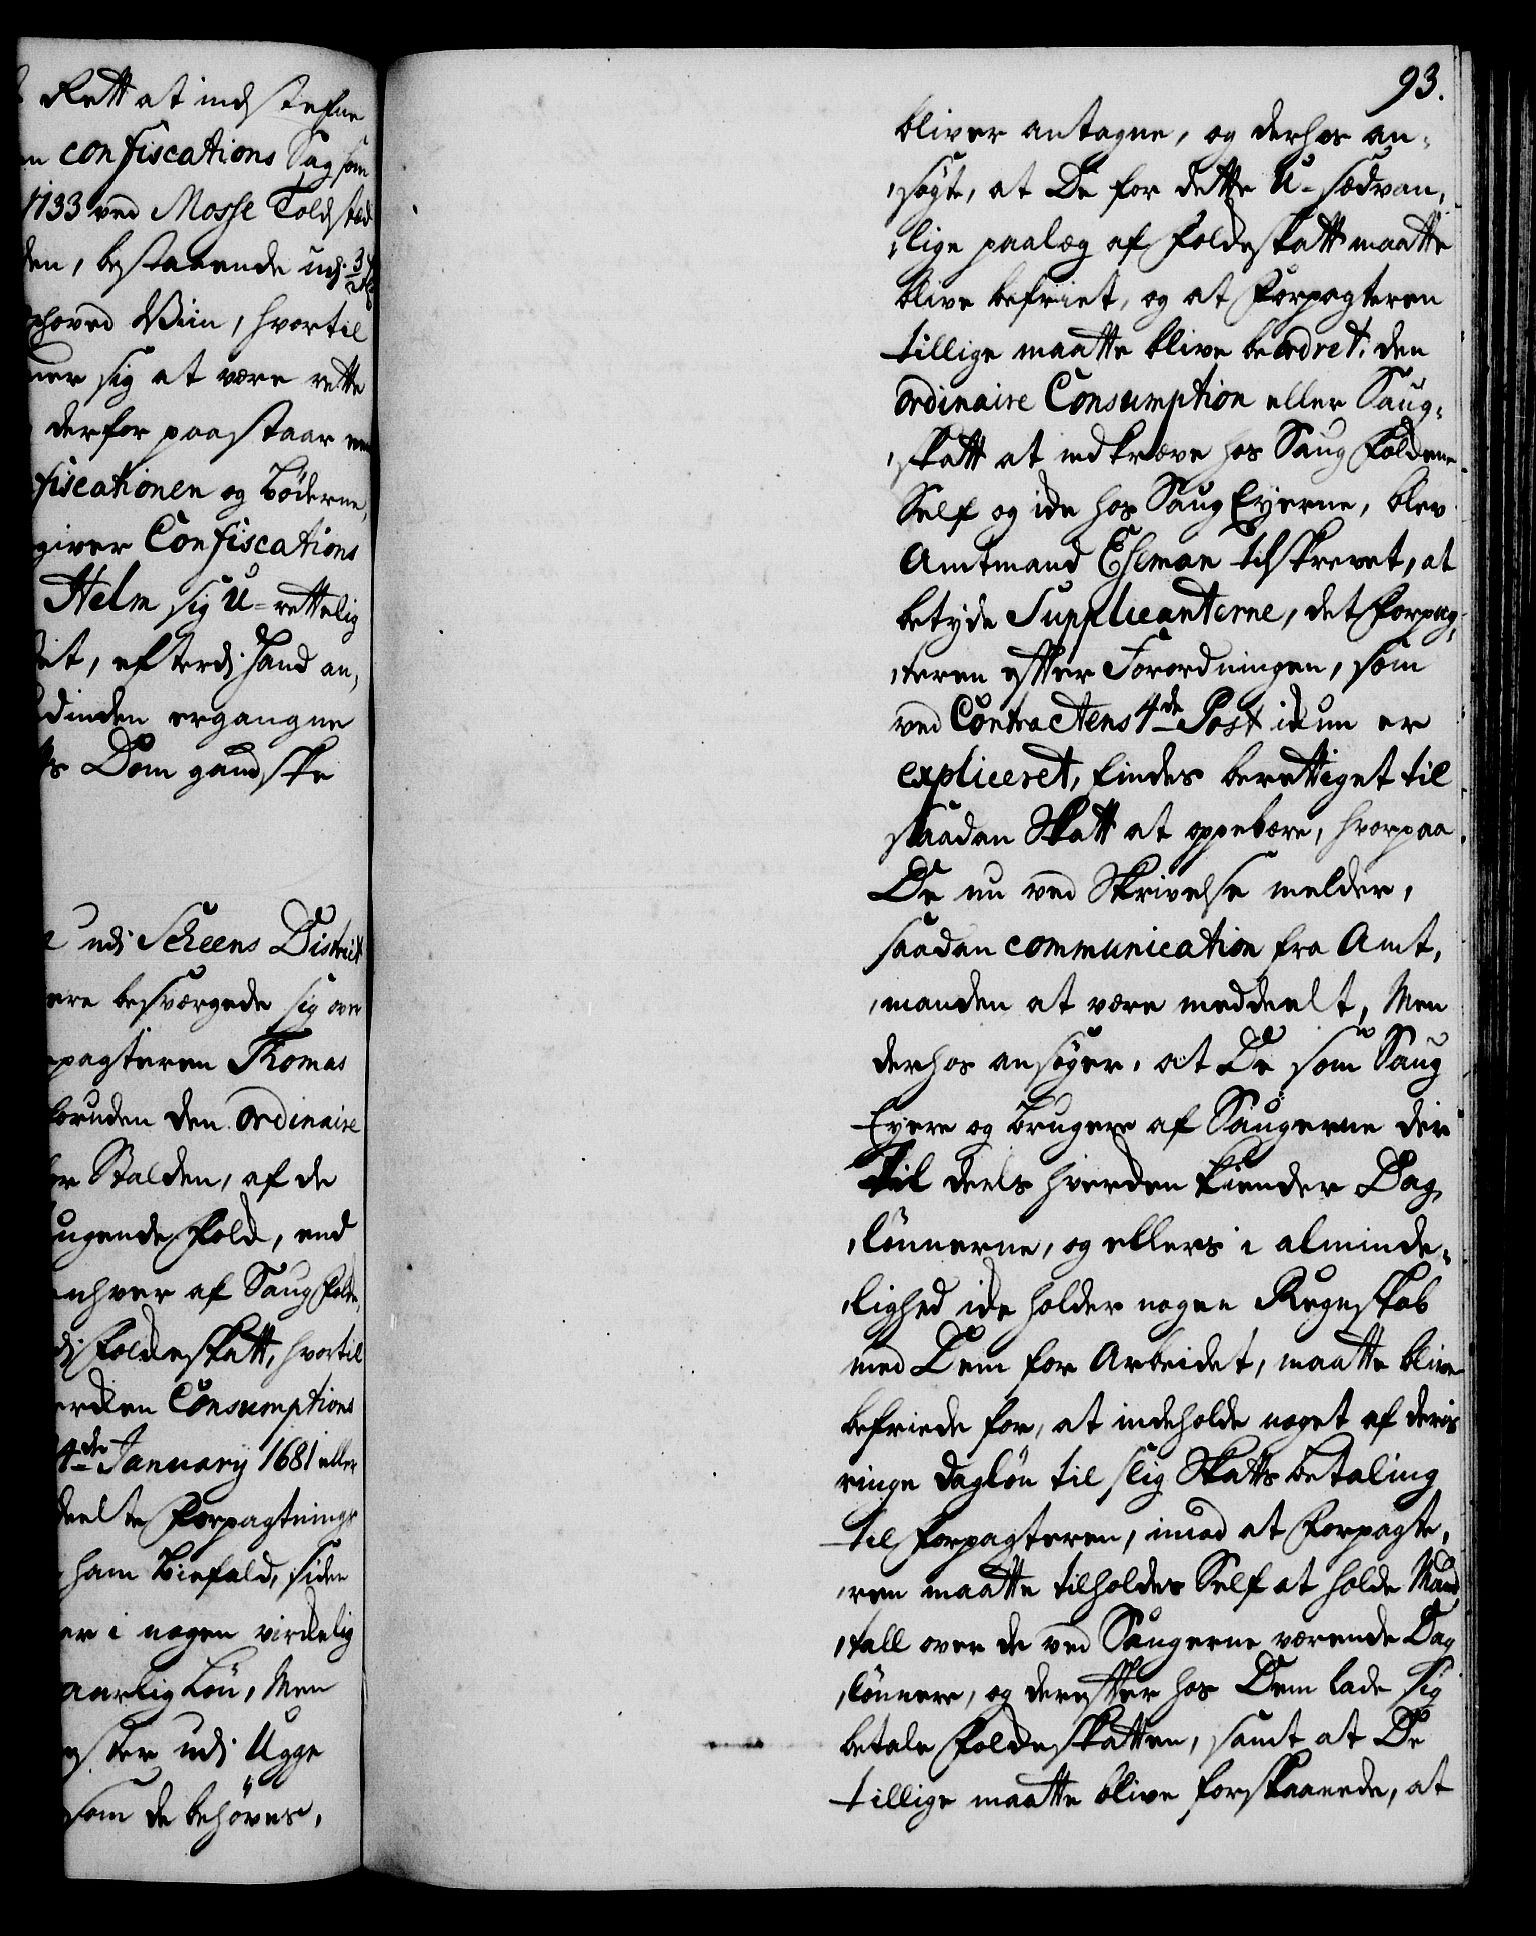 Rett at indstefne
confiscations Sag som
1733 ved Mosse Toldstæd
bestaaende udj 3
hoved Viin, hvortil
sig at være rette
derfor paastaar
fiscationen og Bøderne,
giver Confiscations
Helm sig U-rettelig
et, efterdj hand an,
dinden ergangne
Dom gandske
udj Scheens District
besværgede sig over
pagteren Thomas
foruden den ordinaire
Stalden, af de
ugende Folk, end
enhver af Saug Folke,
Folkeskatt, hvortil
Consumptions
4de January 1681 eller
deelte Forpagtnings
ham Biefald, siden
er i nogen virkelig
aarlig Løn, Men
udj Ugge
som de behøves,
93.
bliver antagne, og derhos an-
søgte, at De for dette U-sædvan,
lige paalæg af Folkeskatt maatte
blive befriet, og at Forpagteren
tillige maatte blive beordret den
ordinaire Consumption eller Saug-
skatt at indkræve hos Saug Folkene
Self og icke hos Saug Eyerne, blev
Amtmand Ehrman tilskrevet, at
betyde Supplicanterne, det Forpag,
teren efter Forordningen, som
ved Contractens 4de Post ickun er
expliceret, findes berettiget til
saadan Skatt at oppebære, hvorpaa
De nu ved Skrivelse melder,
saadan communication fra Amt,
manden at være meddeelt, Men
derhos ansøger, at De som Saug
Eyere og Brugere af Saugerne der
til deels hverken kiender Dag,
lønnerne, og ellers i alminde-
lighed icke holder nogen Regnskab
med Dem for Arbeidet, maatte blive
befriede for, at indeholde noget af deris
ringe dagløn til slig Skatts betaling
til Forpagteren, imod at Forpagte,
ren maatte tilholdes Self at holde Mand,
tall over de ved Saugerne værende Dag
lønnere, og derefter hos Dem lade sig
betale Folkeskatten, samt at De
tillige maatte blive forskaanede, at